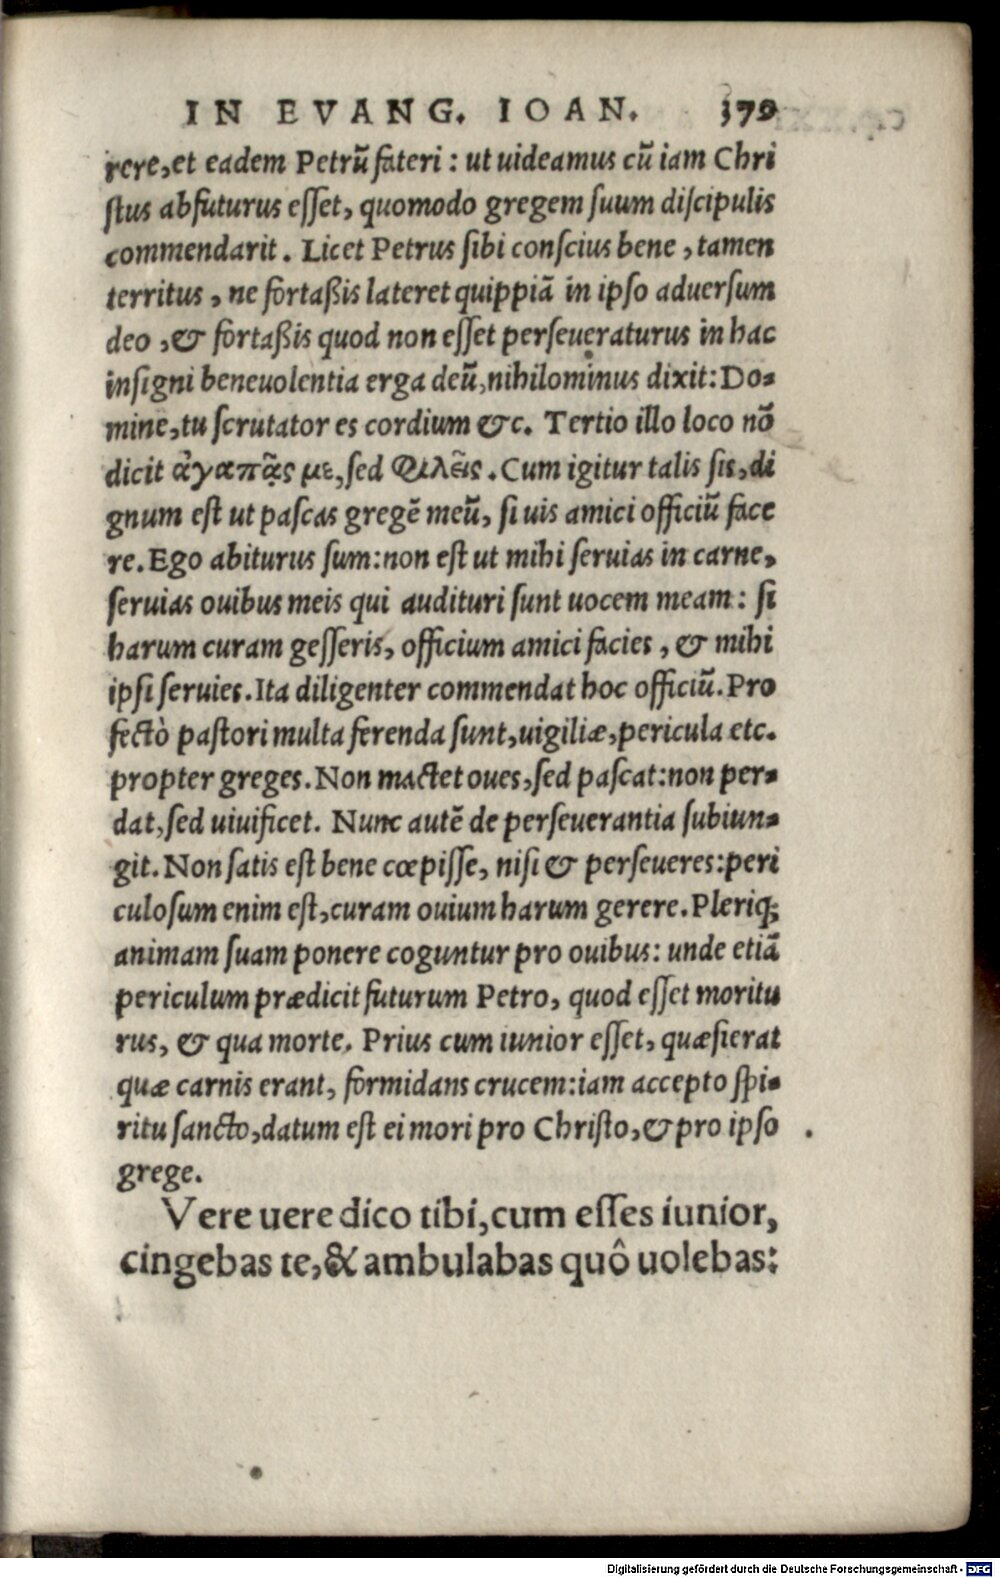 IN EVANG. IOAN. 379
rere, et eadem Petrũ fateri: ut uideamus cũ iam Chri
ſtus abfuturus eſſet, quomodo gregem ſuum diſcipulis
commendarit. Licet Petrus ſibi conſcius bene, tamen
territus, ne fortaßis lateret quippiã in ipſo aduerſum
deo, & fortaßis quod non eſſet perſeueraturus in hac
inſigni beneuolentia erga deũ, nihilominus dixit: Do-
mine, tu ſcrutator es cordium &c. Tertio illo loco nõ
dicit ἀγαπᾷς με, ſed Φιλεῖς. Cum igitur talis ſis, di
gnum eſt ut paſcas gregẽ meũ, ſi uis amici officiũ face
re. Ego abiturus ſum: non eſt ut mihi ſeruias in carne,
ſeruias ouibus meis qui audituri ſunt uocem meam: ſi
harum curam geſſeris, officium amici facies, & mihi
ipſi ſeruies. Ita diligenter commendat hoc officiũ. Pro
fectò paſtori multa ferenda ſunt, uigiliæ, pericula etc.
propter greges. Non mactet oues, ſed paſcat: non per-
dat, ſed uiuificet. Nunc autẽ de perſeuerantia ſubiun-
git. Non ſatis eſt bene cœpiſſe, niſi & perſeueres: peri
culoſum enim eſt, curam ouium harum gerere. Pleriq;
animam ſuam ponere coguntur pro ouibus: unde etiã
periculum prædicit futurum Petro, quod eſſet moritu
rus, & qua morte. Prius cum iunior eſſet, quæſierat
quæ carnis erant, formidans crucem: iam accepto ſpi-
ritu ſancto, datum eſt ei mori pro Chriſto, & pro ipſo
grege.
Vere uere dico tibi, cum eſſes iunior,
cingebas te, & ambulabas quô uolebas:
Digitalisierung gefördert durch die Deutsche Forschungsgemeinschaft - DFG